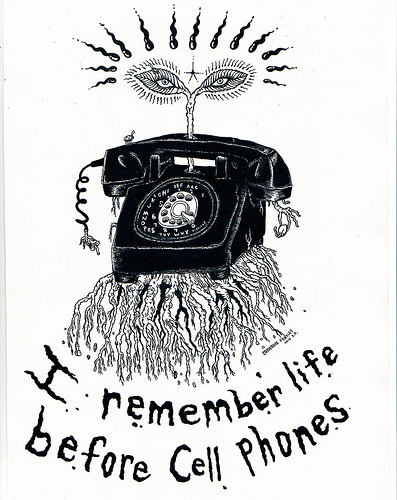 I remember life
before Cell Phones